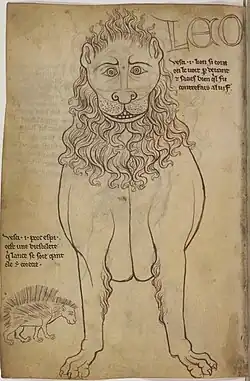 LEO
Vesci · i · lion si com
on le voit p devant
& sacies bien q'l fu
contrefais al vif.
Vesci · i · porc espi ·
cest une biestelete
q' lance se soie quant
ele